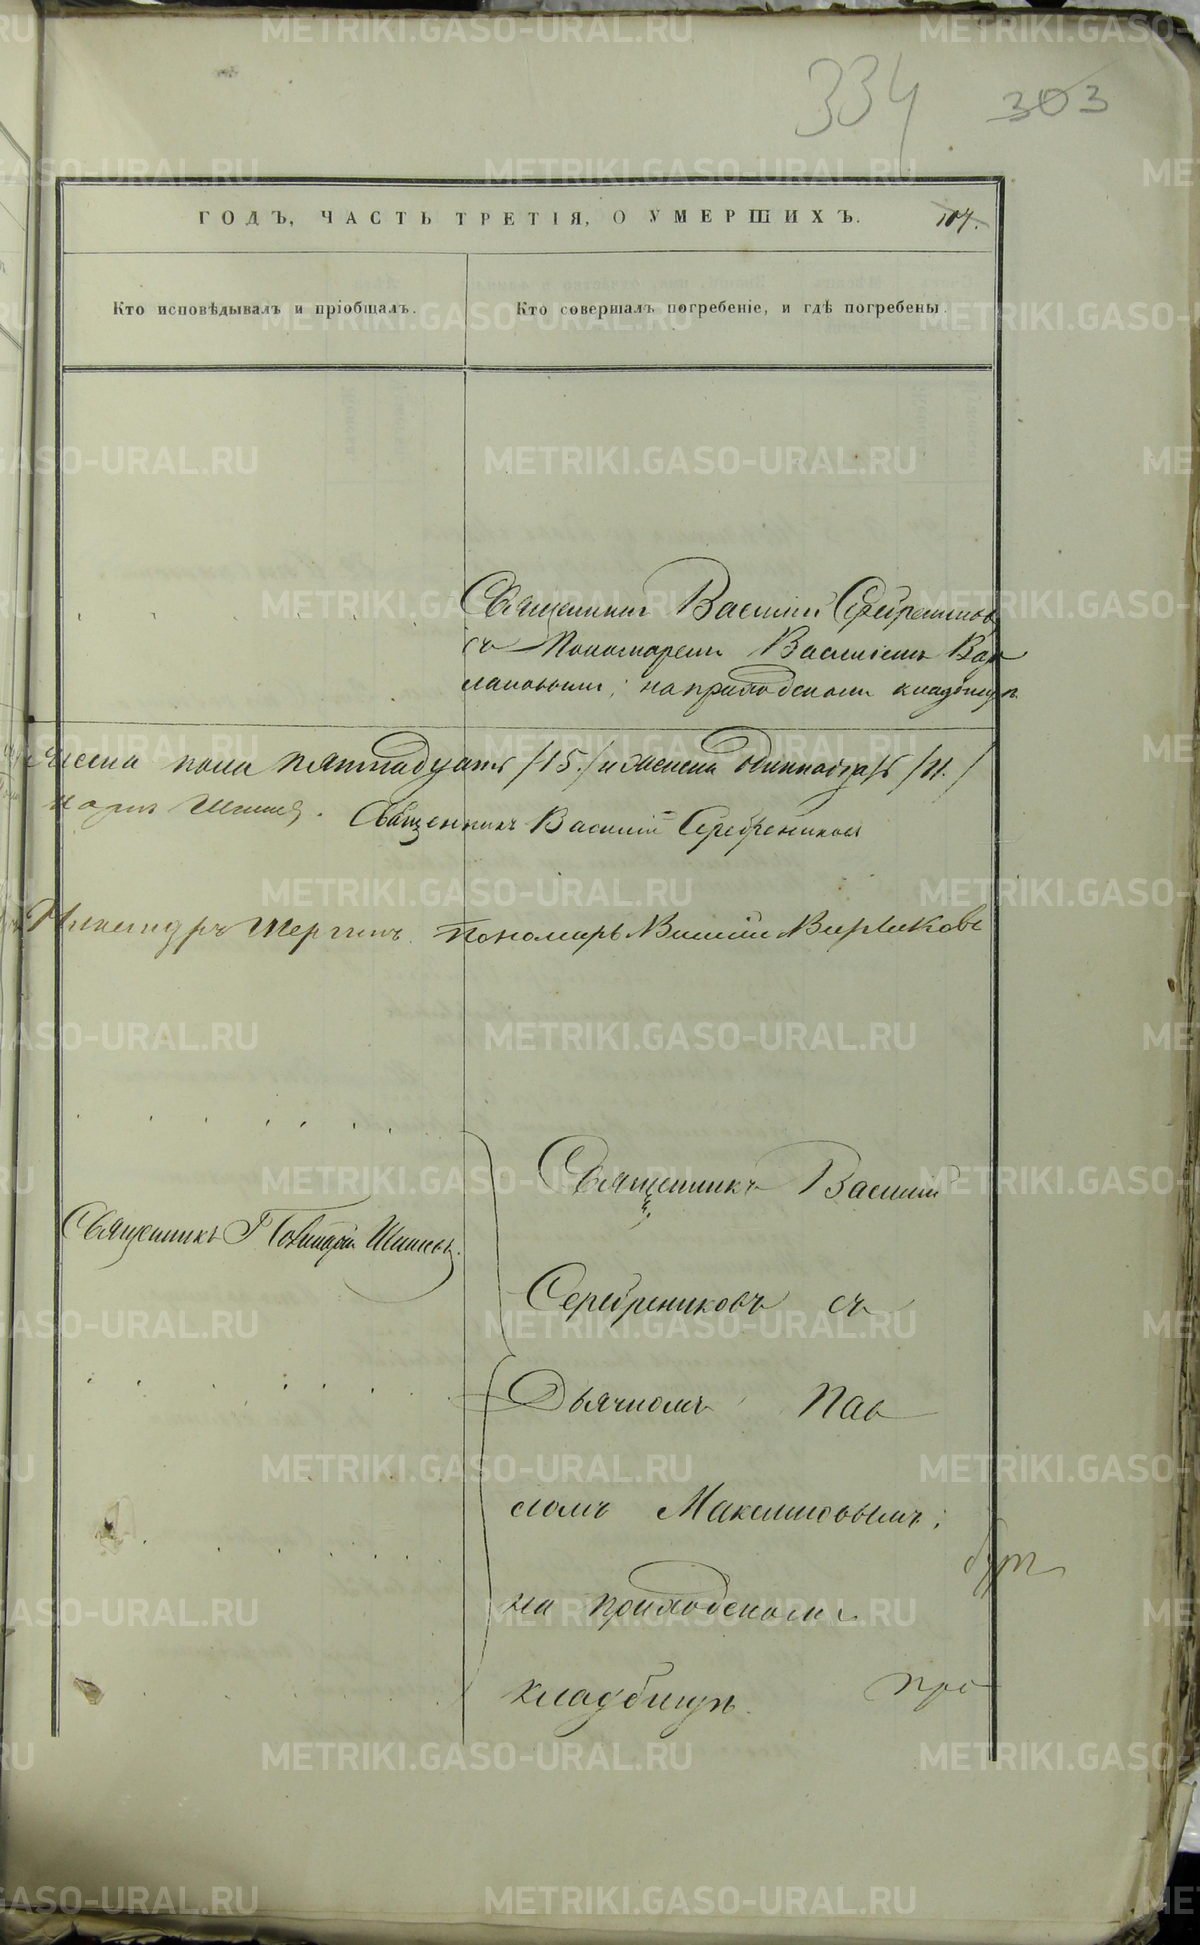 334 303
ГОДЪ, ЧАСТЬ ТРЕТІЯ, О УМЕРШИХЪ. 107.
Кто исповѣдывалъ и пріобщалъ.
Кто совершалъ погребеніе, и гдѣ погребены.
Священникъ Василій Серебрениковъ
съ Пономаремъ Василіемъ Вар
лаковымъ; на приходскомъ кладбищѣ
пола пятнадцать /15./ и женска одиннадцать /11./
Священникъ Василій Серебрениковъ
Пономарь Василій Варлаковъ
Священникъ Шишевъ.
Священникъ Василій
Серебрениковъ съ
Дьячкомъ Пав
ломъ Максимовымъ;
на приходскомъ
кладбищѣ.
METRIKI.GASO-URAL.RU